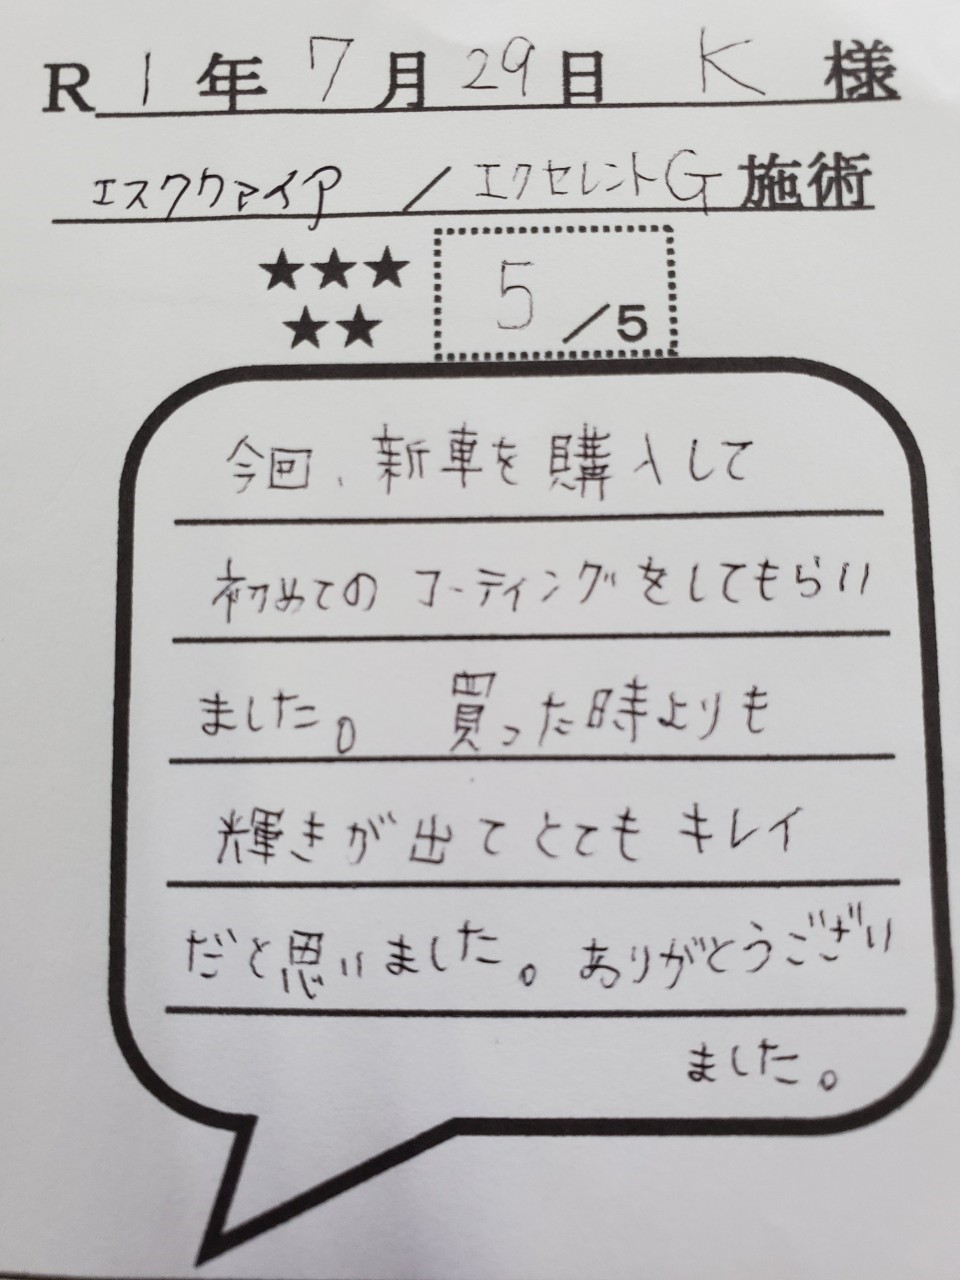 R1年7月29日 K様
エスクァイア／エクセレントG施術
★★★ 5／5
★★
今回、新車を購入して
初めてのコーティングをしてもらい
ました。 買った時よりも
輝きが出てとてもキレイ
だと思いました。ありがとうござい
ました。